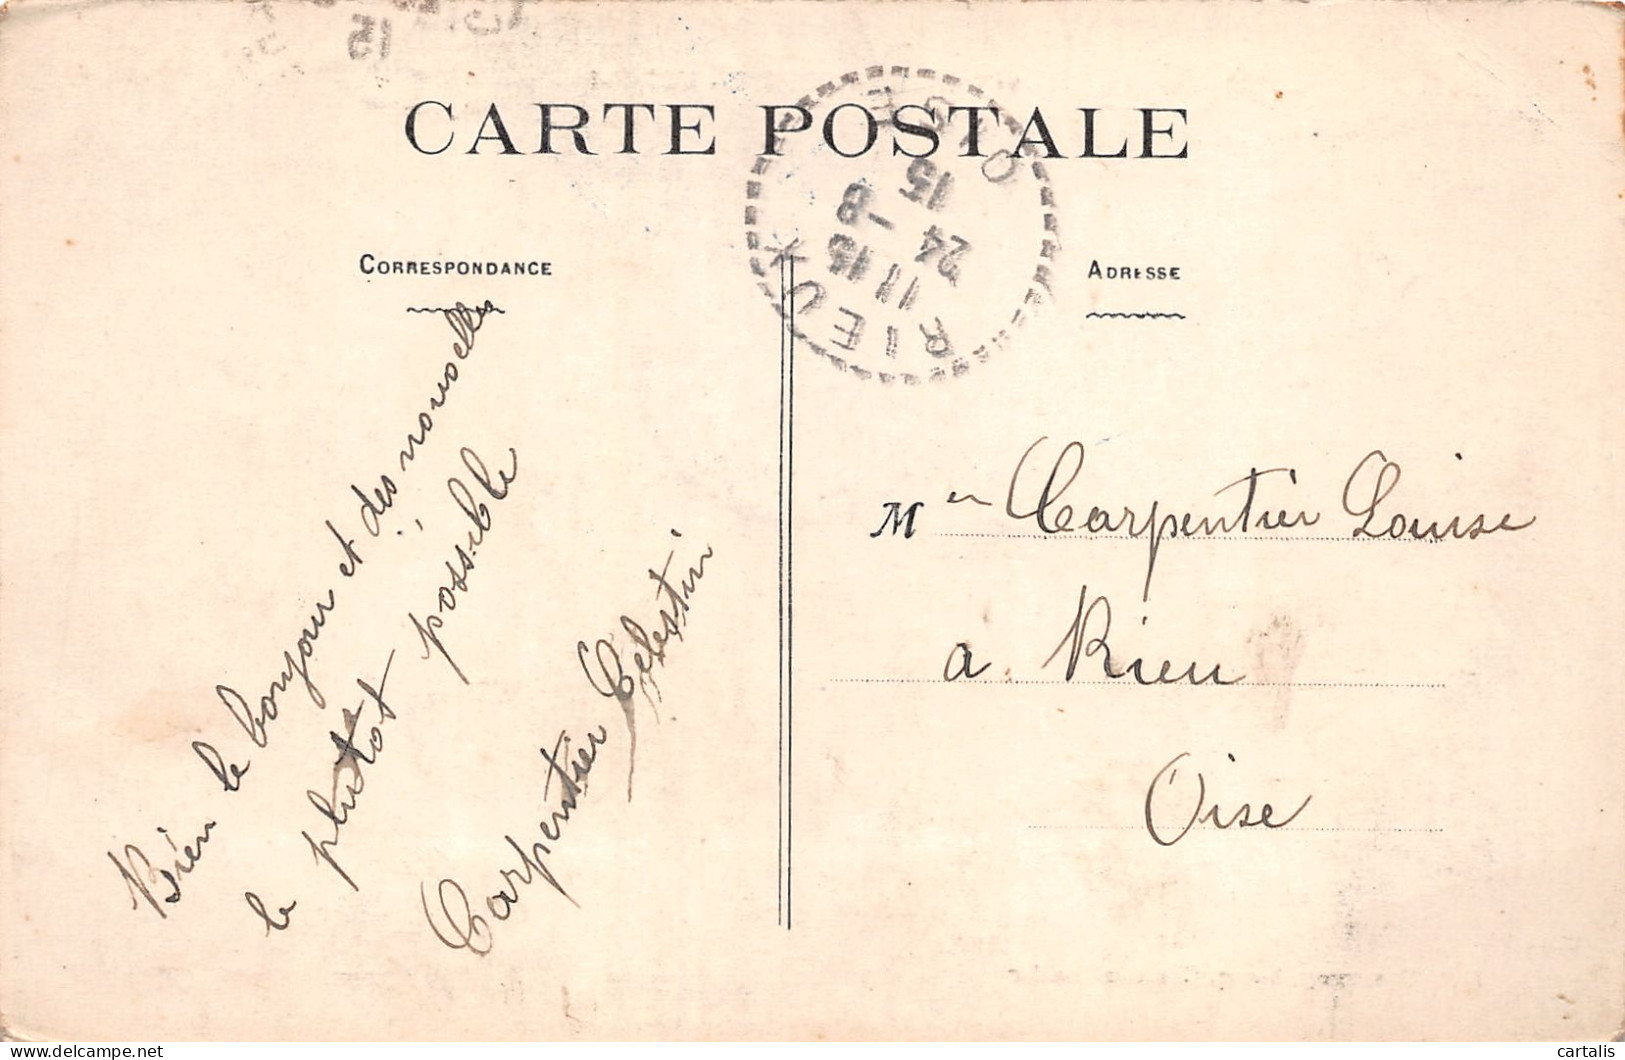 15
CARTE POSTALE
RIEUX
OISE
11 15
24 -8
15
CORRESPONDANCE
ADRESSE
Bien le bonjour et des nouvelles
le plustot possible
Carpentier Célestin
M en Carpentier Louise
a Rieu
Oise
www.delcampe.net
cartalis